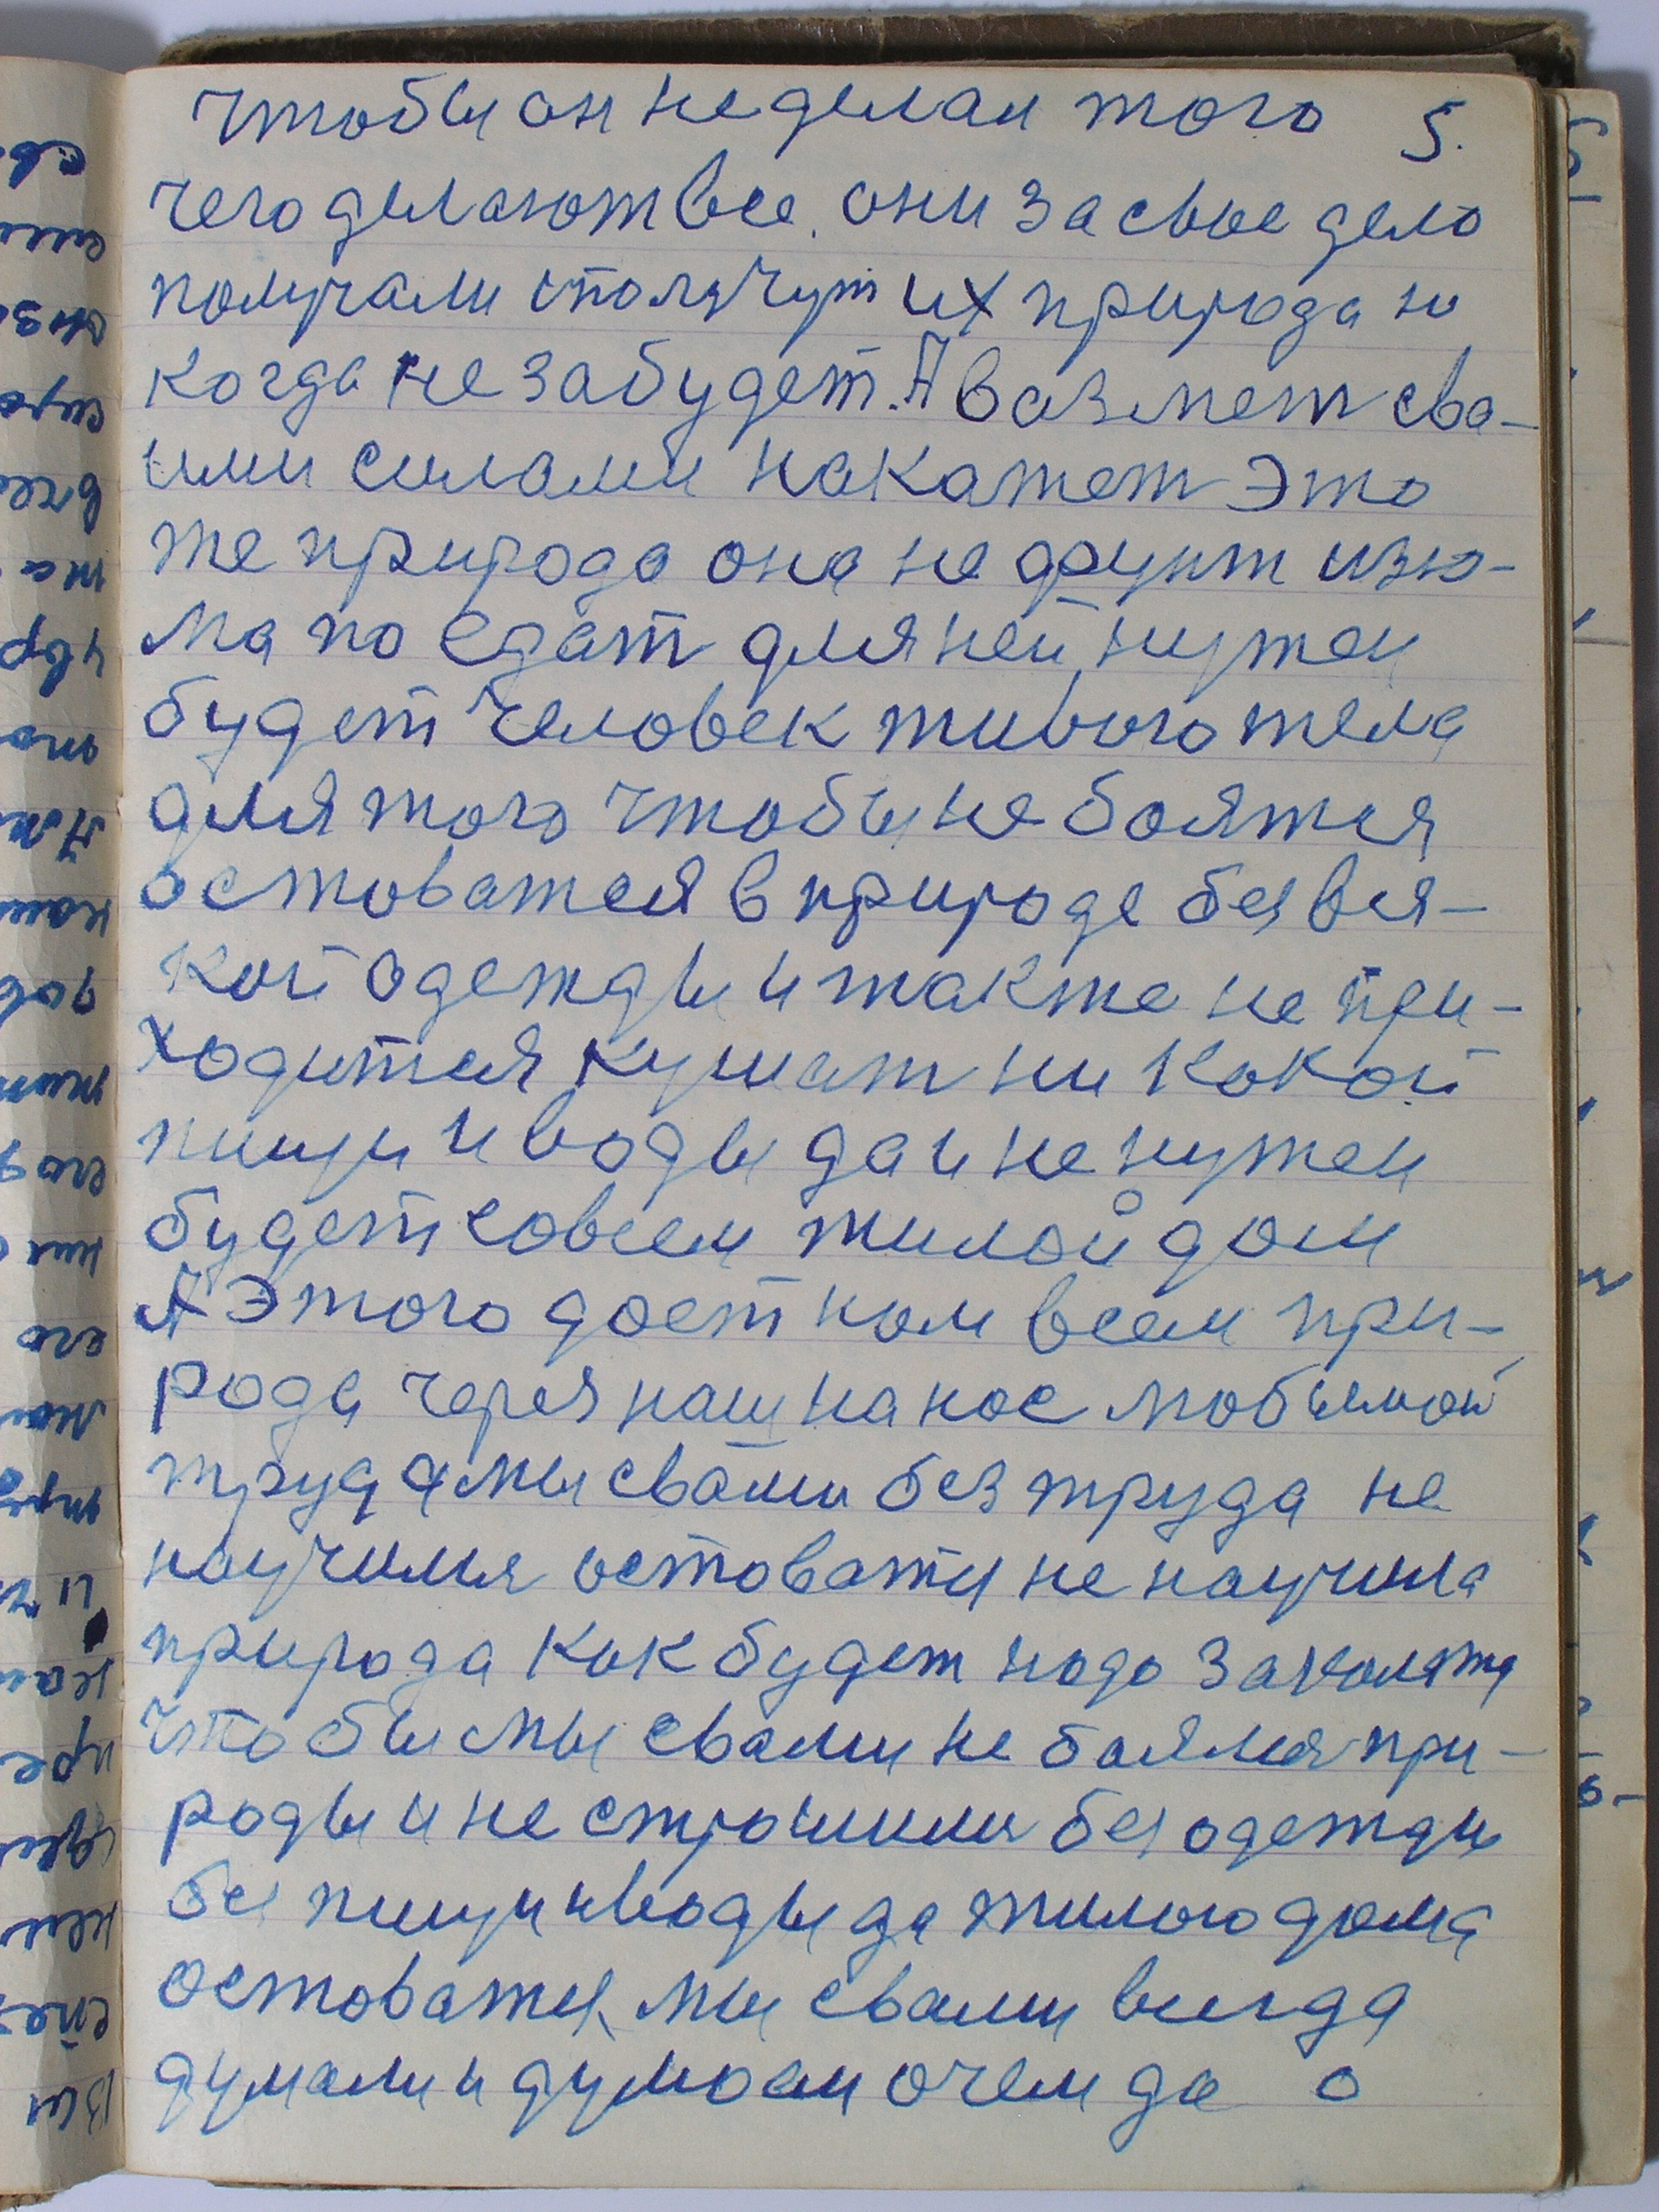 чтобы он не делал того 5.
чего делают все. они за свое дело
получали и получут их природа ни
когда не забудет. А вазмет сва-
ими силами накажет это
же природа она не фунт изю-
ма поедат для ней нужен
будет человек живого тела
для того чтобы не боятся
оставатся в природе без вся-
кой одежды и также не при-
ходится кушат ни какой
пищи и воды да и не нужен
будет совсем жилой дом
А этого дост нам всем при-
рода через наш на нос любимой
труд а мы свами без труда не
научимся оставатся не научила
природа как будет надо закалятя
чтобы мы свами не боялися при-
роды и не страшилися без одежды
без пищи и воды да жилого дома
оставатся, мы свами всегда
думали и думаем о чем да о